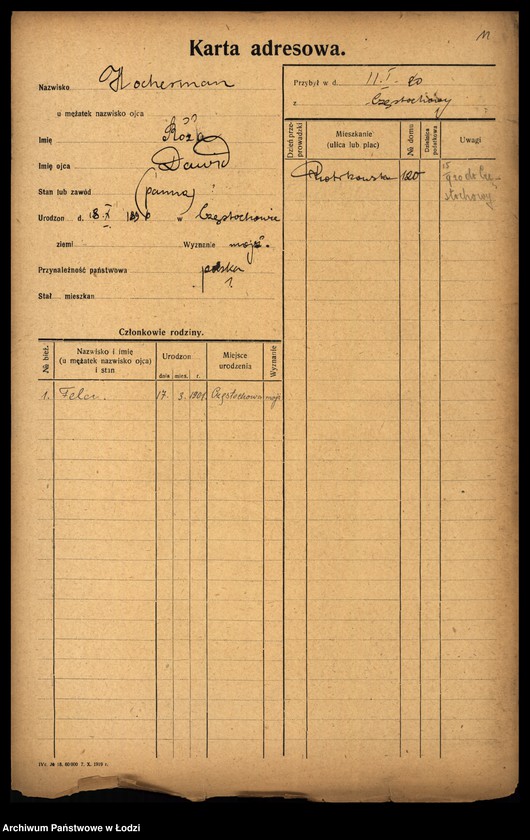 11
Karta adresowa.
Nazwisko Hocherman
u mężatek nazwisko ojca
Imię Róża
Imię ojca Dawid
Stan lub zawód panna
Urodzon d. 8 X w Częstochowie
ziemi Wyznanie mojż.
Przynależność państwowa polska
Stał. mieszkan
Przybył w d. 11. I. 20
z Częstochowy
Dzień przeprowadzki
Mieszkanie (ulica lub plac)
№ domu
Dzielnica podatkowa
Uwagi
Piotrkowska 120
15
do Częstochowy
Członkowie rodziny.
№ bież.
Nazwisko i imię
(u mężatek nazwisko ojca)
i stan
Urodzon
dnia mies. r.
Miejsce
urodzenia
Wyznanie
1. Fela. 17. 3. 1901. Częstochowa mojż
IVc. № 18. 60000 7. X. 1919 r.
Archiwum Państwowe w Łodzi